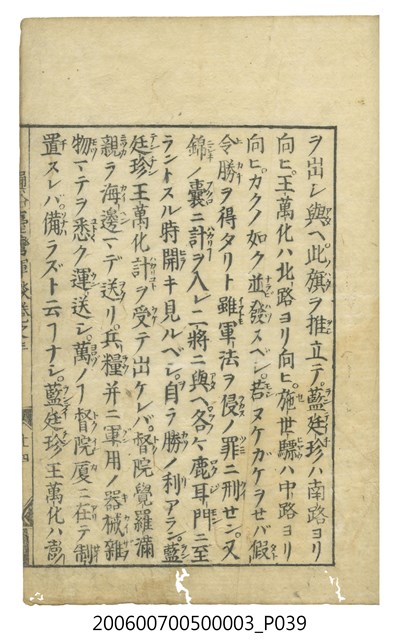 ヲ出シ與ヘ此旗ヲ推立テ藍廷珍ハ南路ヨリ
向ヒ王萬化ハ北路ヨリ向ヒ施世驃ハ中路ヨリ
向ヒカクノ如ク並發スベシ若ヌケガケヲせバ假
令勝ヲ得タリト雖軍法ヲ侵ノ罪ニ刑せン又
錦ノ囊ニ計ヲ入レ二將ニ與ヘ各々鹿耳門ニ至
ラントスル時開キ見ルベシ自ラ勝ノ利アラン藍
廷珍王萬化計ヲ受テ出ケレバ督院覺羅滿
親ラ海邊マデ送リ兵糧并ニ軍用ノ器械雜
物マテヲ悉ク運送シ萬ノ一督院廈ニ在テ制
置スレハ備ラズト云フナシ藍廷珍王萬化ハ澎
廿四
200600700500003_P039